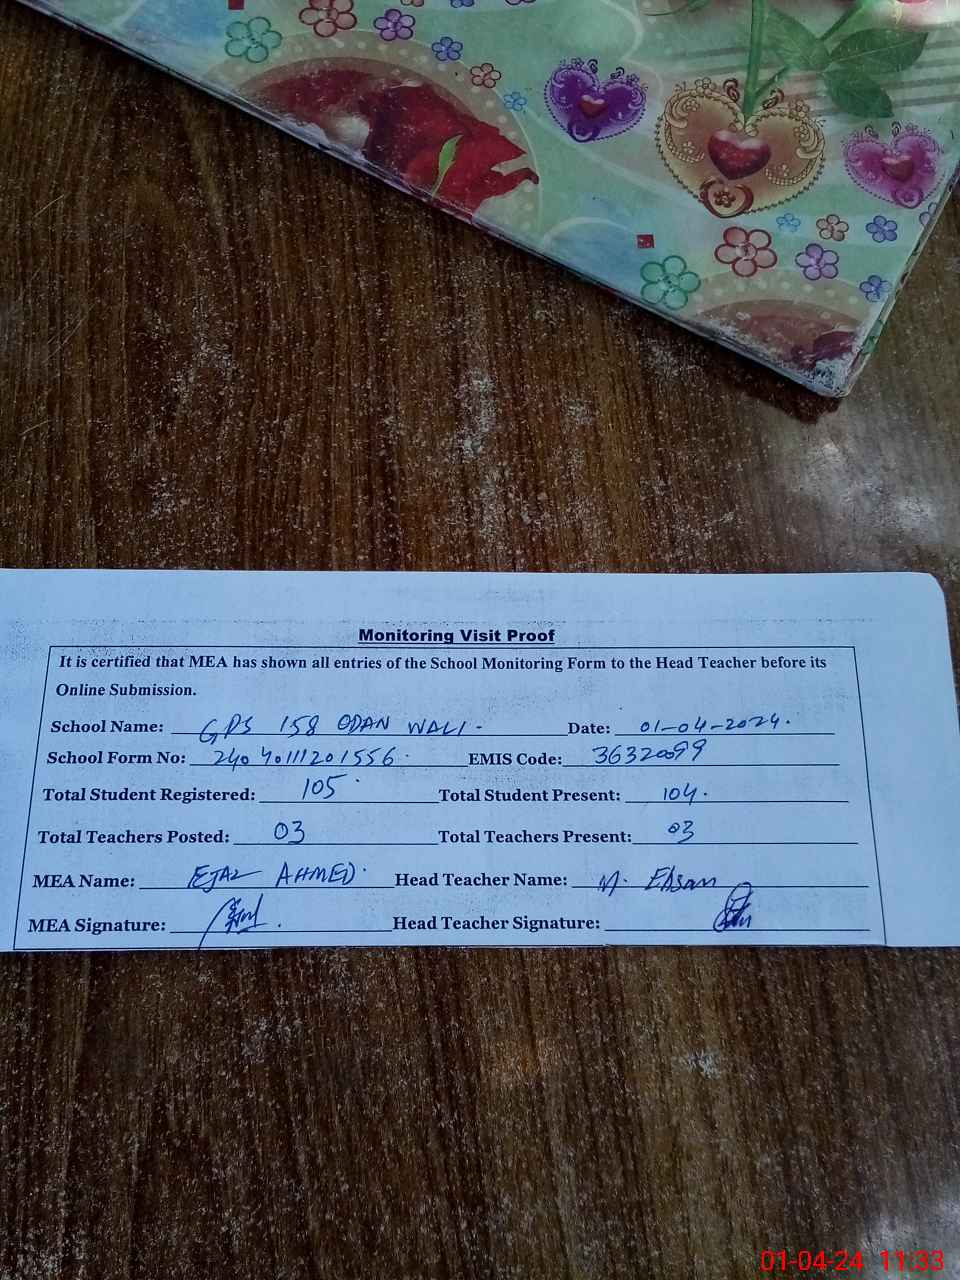 Monitoring Visit Proof
It is certified that MEA has shown all entries of the School Monitoring Form to the Head Teacher before its
Online Submission.
School Name: GPS 158 ODAN WALI - Date: 01-04-2024.
School Form No: 24040111201556. EMIS Code: 36320099
Total Student Registered: 105 Total Student Present: 104.
Total Teachers Posted: 03 Total Teachers Present: 03
MEA Name: EJAZ AHMED. Head Teacher Name: M. Ehsan
MEA Signature: Head Teacher Signature:
01-04-24 11:33